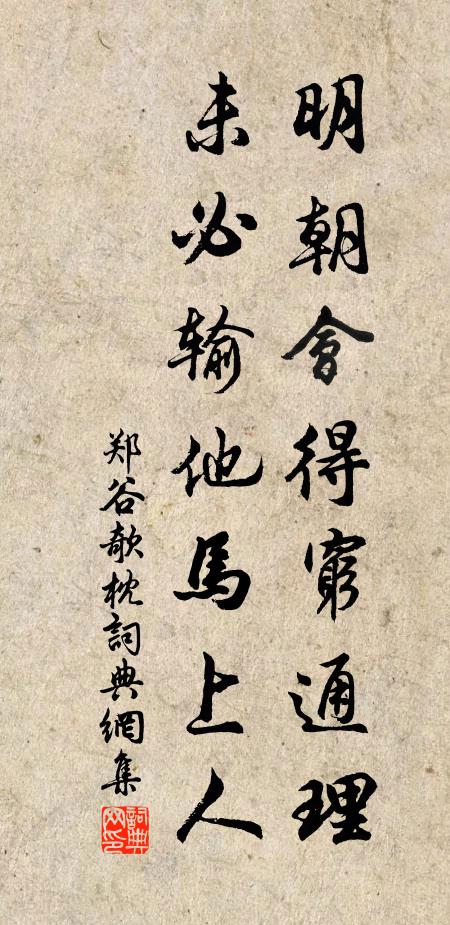 明朝會得窮通理
未必輸他馬上人
郑谷欹枕詞典網集
詞典網印